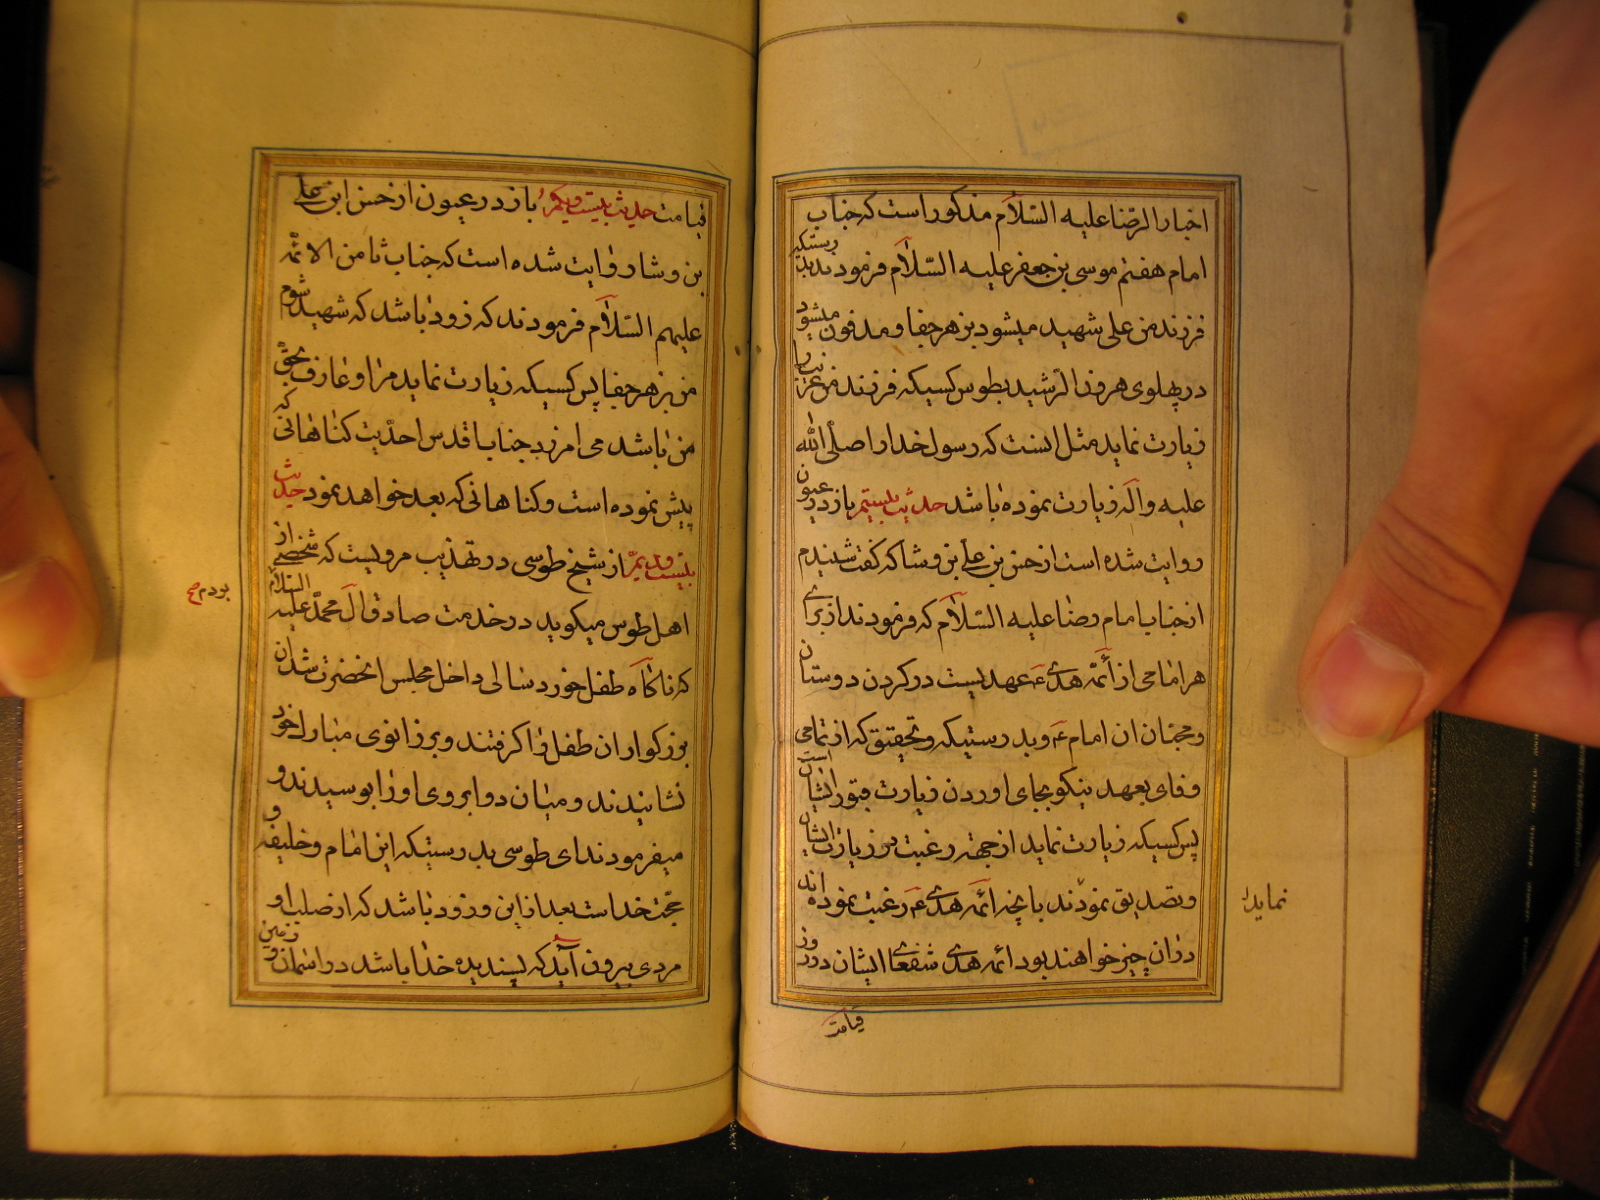 اخبار الرضا علیه السّلام مذکور است که جناب
امام هفتم موسی بن جعفر علیه السّلام فرمودند بدرستیکه
فرزند من علی شهید میشود بزهر جفا و مدفون میشود
در پهلوی هرون الرّشید بطوس کسیکه فرزند من غریب را
زیارت نماید مثل انست که رسول خدا را صلّی الله
علیه واله زیارت نموده باشد حدیث بیستم باز در عیون
روایت شده است از حسن بن علی بن وشا که گفت شنیدم
از جناب امام رضا علیه السّلام که فرمودند از برای
هر امامی از ائمّه هدی ع عهدیست در کردن دوستان
و محبّان ان امام ع و بدرستیکه و تحقیق که از تمامی
وفای بعهد نیکو بجای اوردن زیارت قبور ایشان است
پس کسیکه زیارت نماید از جهة رغبت در زیارت ایشان
و تصدیق نمودند بانچه ائمّه هدی ع رغبت نموده اند
نمایند
دران چیز خواهند بود ائمه هدی شفعاء ایشان در روز
قیامت
قیامت حدیث بیست ویکم باز در عیون از حسن ابن علی
بن وشا روایت شده است که جناب ثامن الائمّه
علیهم السّلام فرمودند که زود باشد که شهید شوم
من بزهر جفا پس کسیکه زیارت نماید مرا و عارف بحقّ
من باشد می امرزد جناب اقدس احدّیت کناهانی که
پیش نموده است و کناهانی که بعد خواهد نمود حدیث
بیست ودیم از شیخ طوسی در تهذیب مرویست که شخصی از
اهل طوس میکوید در خدمت صادق ال محمّد علیه السلام
بودم صح
که ناکاه طفل خورد سالی داخل مجلس انحضرت شد ان
بزرکوار ان طفل را کرفتند و بر زانوی مبارک خود
نشانیدند و میان دو ابروی او را بوسیدند و
میفرمودند ای طوسی بدرستیکه این امام و خلیفه و
حجّت خداست بعد از این و زود باشد که از صلب او
مردی بیرون آید که پسندیده خدا باشد در اسمان و زمین و